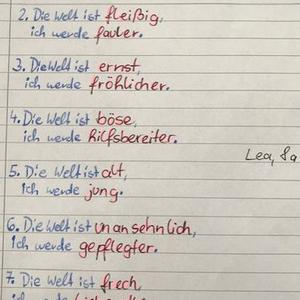 2. Die Welt ist fleißig,
ich werde fauler.
3. Die Welt ist ernst,
ich werde fröhlicher.
4. Die Welt ist böse,
ich werde hilfsbereiter.
Lea, 8a
5. Die Welt ist alt,
ich werde jung.
6. Die Welt ist unansehnlich,
ich werde gepflegter.
7. Die Welt ist frech,